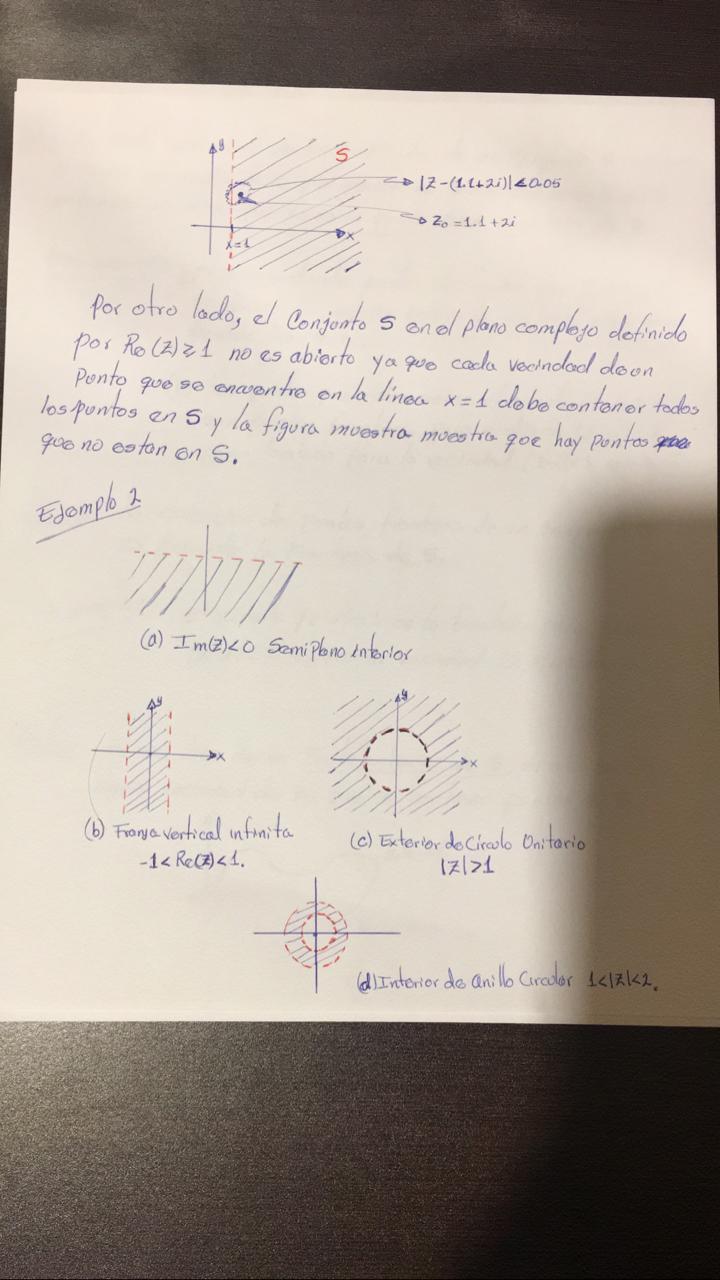 y
S
|Z-(1.1+2i)|<0.05
Z₀=1.1+2i
x
x=1
Por otro lado, el Conjunto S en el plano complejo definido
por Re(z)≥1 no es abierto ya que cada vecindad de un
Punto que se encuentre en la línea x=1 debe contener todos
los puntos en S y la figura muestra muestra que hay puntos
que no estan en S.
Ejemplo 2
(a) Im(z)<0 Semiplano inferior
y
x
y
x
(b) Franja vertical infinita
-1<Re(z)<1.
(c) Exterior de Círculo Unitario
|z|>1
(d) Interior de anillo Circular 1<|z|<2.